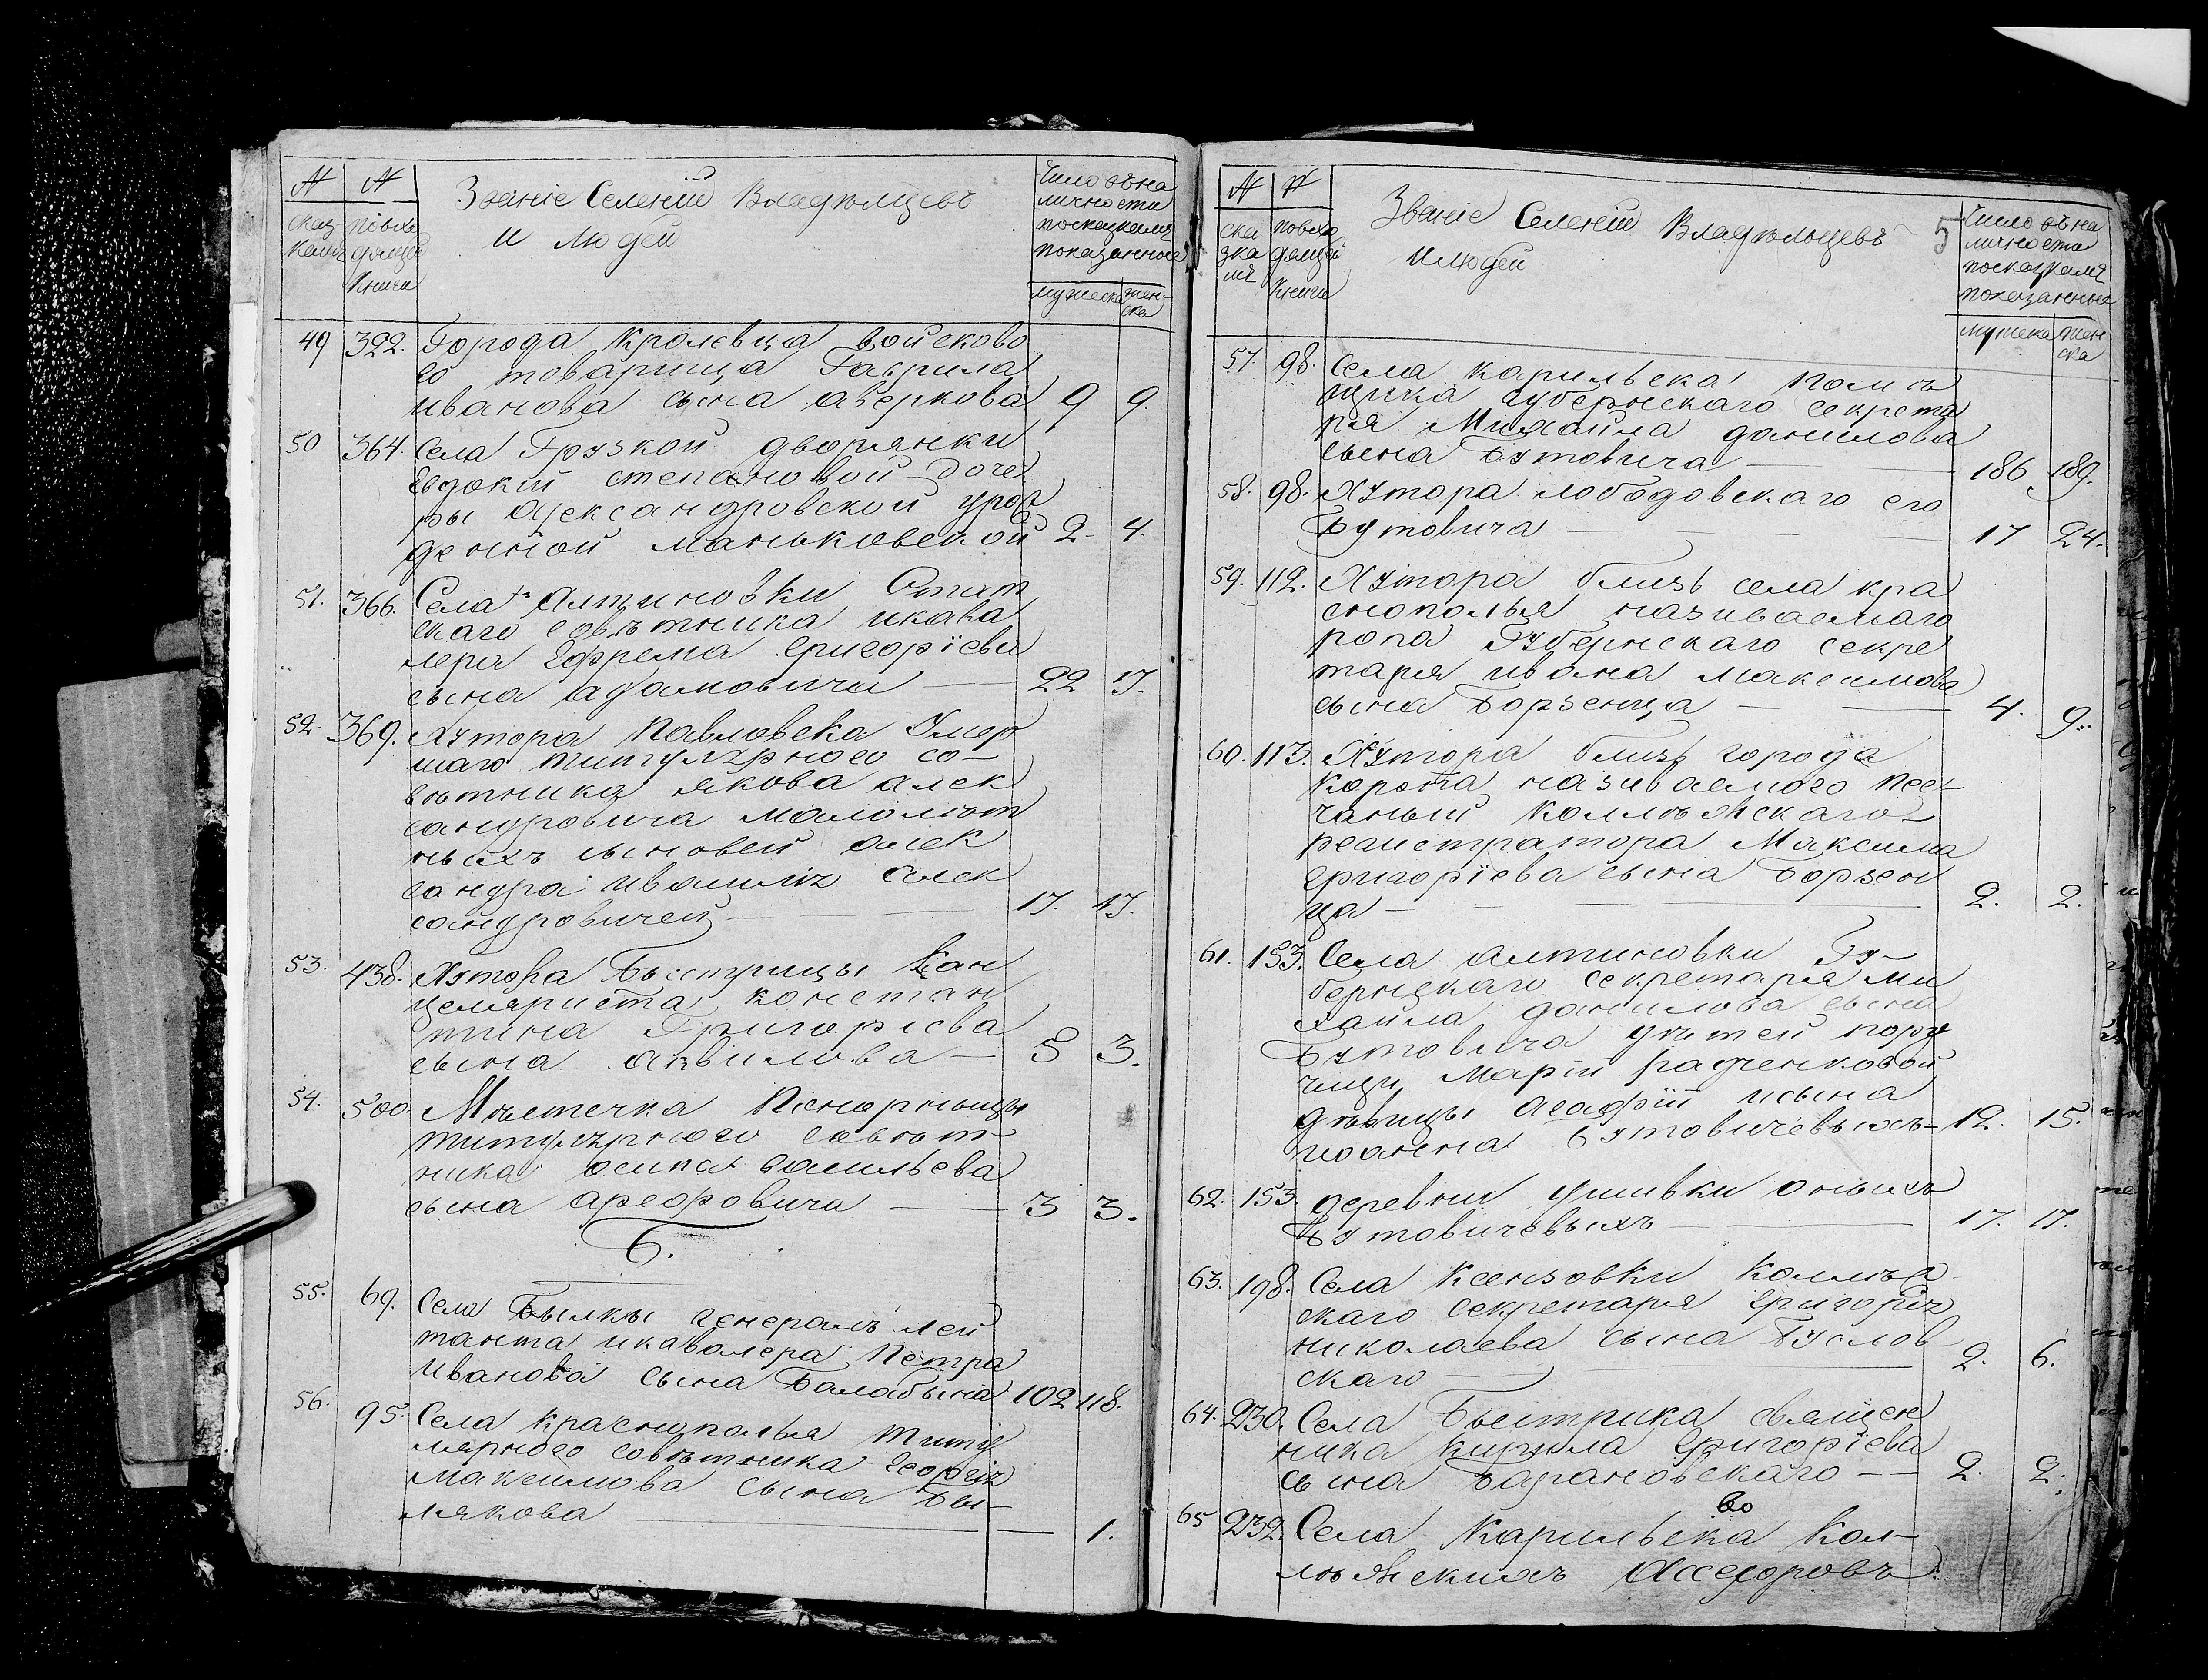 № № Званіе Селеній Владѣлцевъ
и людей
сказ
камъ
повхо
дящей
книги
Число въна
личности
посказкамъ
показанное
мужеска жен-
ска
49 322. Города Кролевца войсково
го товарища Гаврила
Иванова сына Аверкова 9 9.
50 364. Села Грузкой дворянки
Евдокіи Степановой доче
ры Александровской урож
денной Маньковской 2. 4.
51. 366. Села Алтиновки Статт
скаго совѣтника икава
лера Ефрема Григоріева
сына Адамовича 22 17.
52. 369. Хутора Павловска Умер
шаго титулярного со-
вѣтника Якова Алек
сандровича малолѣт
ныхъ сыновей Алек
сандра
сандровичей 17. 17.
53. 438. Хутора Быстрицы Кан
целяриста Констан
тина Григорієва
сына Аквилова 5 3.
54. 500. Мѣстечка Понорницы
титулярного совѣт-
ника Осипа Васильева
сына Арефовича 3 3.
Б.
55. 69. Села Былкы генералъ лей
танта икавалера Петра
Иванова сына Балабына 102 118.
56. 95. Села Краснополья титу
лярного совѣтника Георгія
Максимова сына Бы-
лякова — 1.
№ № Званіе Селеній Владѣльцевъ 5
илюдей
ска
зка
мъ
повхо
дящей
книги
Число въна
личности
посказкамъ
показанныхъ
мужеска жен
ска
57. 98. Села Карильска помѣ
щика губернскаго секрета
ря Михайла Данилова
сына Бутовича 186 189.
58. 98. Хутора Лободовскаго его
Бутовича 17 24.
59. 112. Хутора близь села Кра
снополья називаемаго
ропа Губернскаго секре
таря Ивана Максимова
сына Борзенца 4. 9.
60. 113. Хутора близь города
Коропа називаемого Пес-
чаный Коллѣжскаго
регистратора Максима
Григоріева сына Борзен
ца 2. 2.
61. 153. Села Алтиновки Гу-
бернскаго секретаря Ми
хайла Данилова сына
Бутовича дѣтей пору
чицы Маріи Радченковой
дѣвицы Агафіи исына
Иоанна Бутовичевыхъ 12. 15.
62. 153. деревни Ушивки оныхъ
Бутовичевыхъ 17. 17.
63. 198. Села Ксензовки Коллѣж
скаго секретаря Григорія
Николаева сына Буслов
скаго 2. 6.
64. 230. Села Быстрика священ
ника Кирила Григоріева
сына Барановскаго 2. 2.
65 232. Села Карильска во Кол-
лѣжскихъ Ассесоровъ